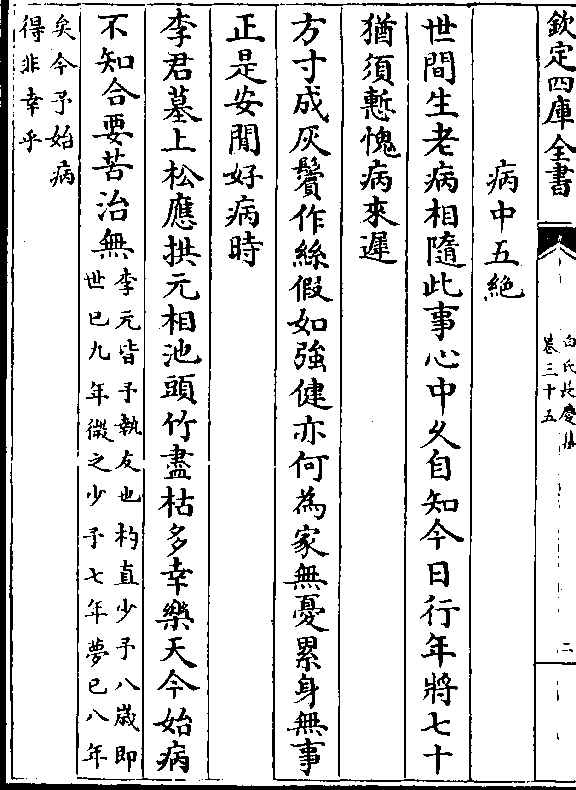 欽定四庫全書
白氏長慶集
卷三十五
二
病中五絶
世間生老病相隨此事心中久自知今日行年將七十
猶須慙愧病來遲
方寸成灰鬢作絲假如強健亦何為家無憂累身無事
正是安閒好病時
李君墓上松應拱元相池頭竹盡枯多幸樂天今始病
不知合要苦治無
李元皆予執友也杓直少予八歳即
世已九年微之少予七年夢已八年
矣今予始病
得非幸乎